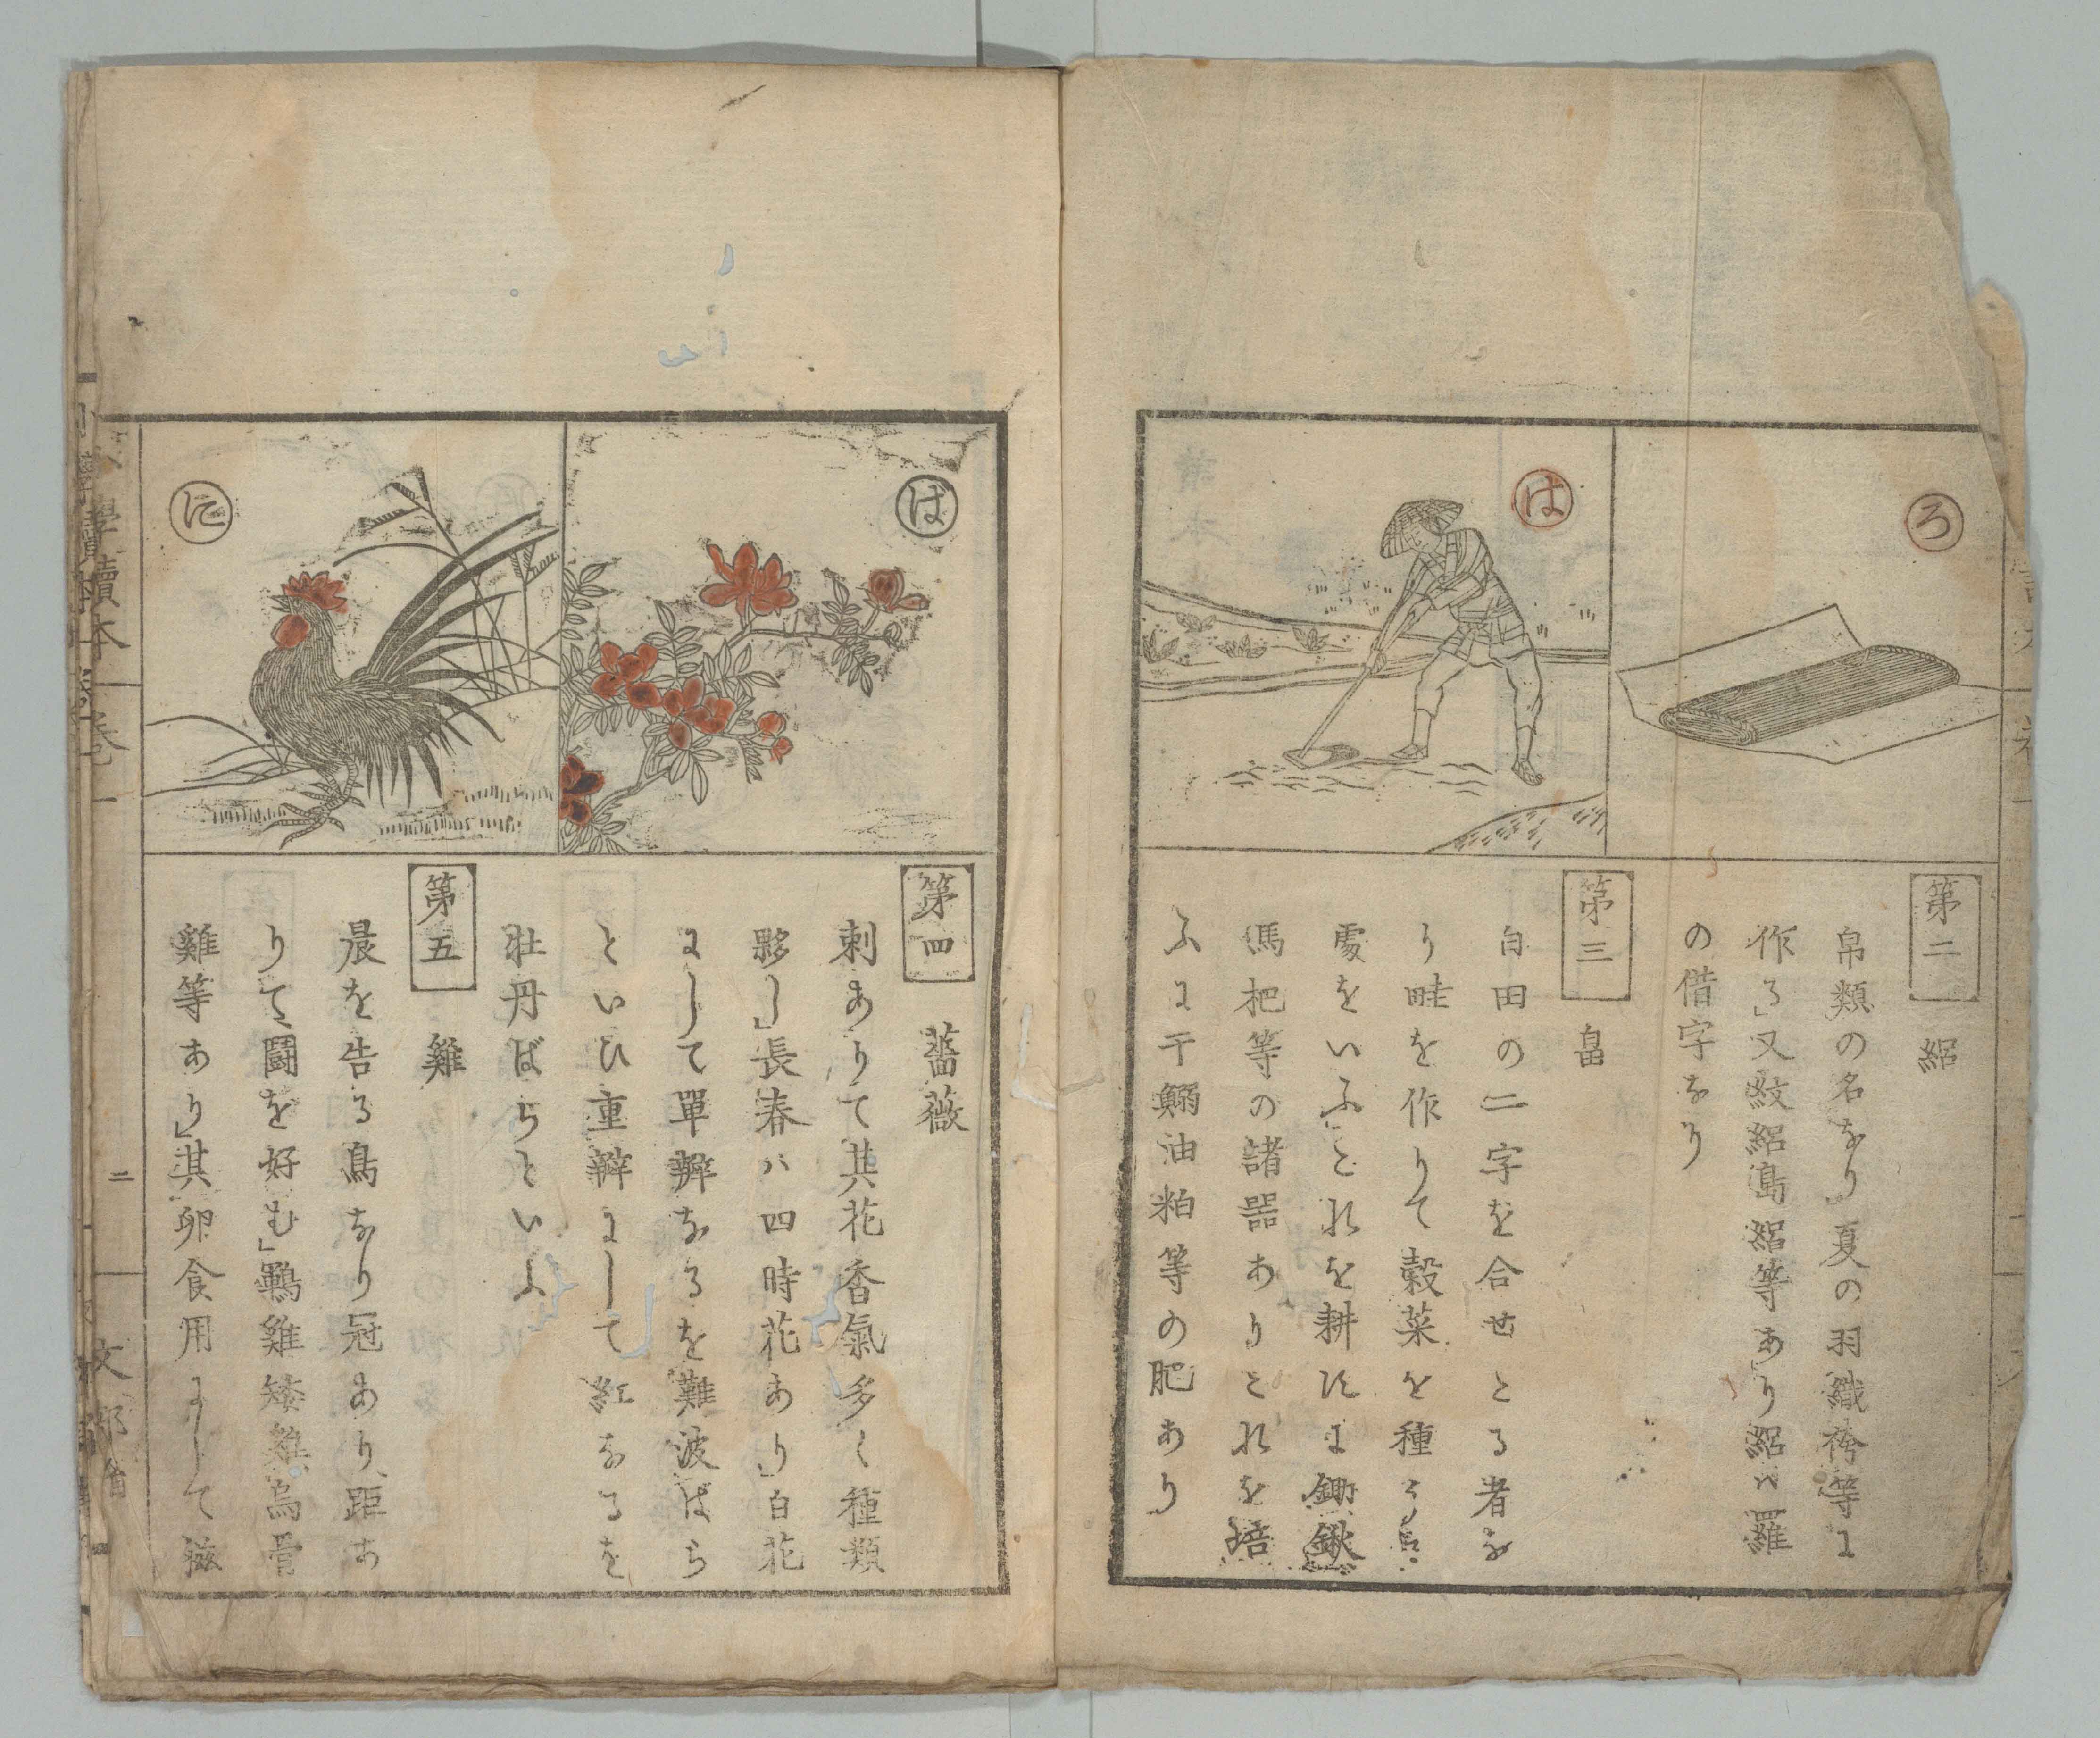 ろ
は
第二　絽
帛類の名なり」夏の羽織袴等に
作る」又紋絽島絽等あり」絽ハ羅
の借字なり
第三　畠
白田の二字を合せたる者な
り畦を作りて穀菜を種うる
処をいふ」これを耕すに鋤鍬
馬把等の諸器ありこれを培
ふに干鰯油粕等の肥あり
ば
に
第四　薔薇
刺ありて其花香氣多く種類
夥し」長春ハ四時花あり」白花
にして單瓣なるを難波ばら
といひ重瓣にして紅なるを
牡丹ばらといふ
第五　雞
晨を告る鳥なり冠あり、距あ
りて闘を好む」鶤雞矮雞烏骨
雞等あり」其卵食用にして滋
小學讀本　巻一　二　文部省